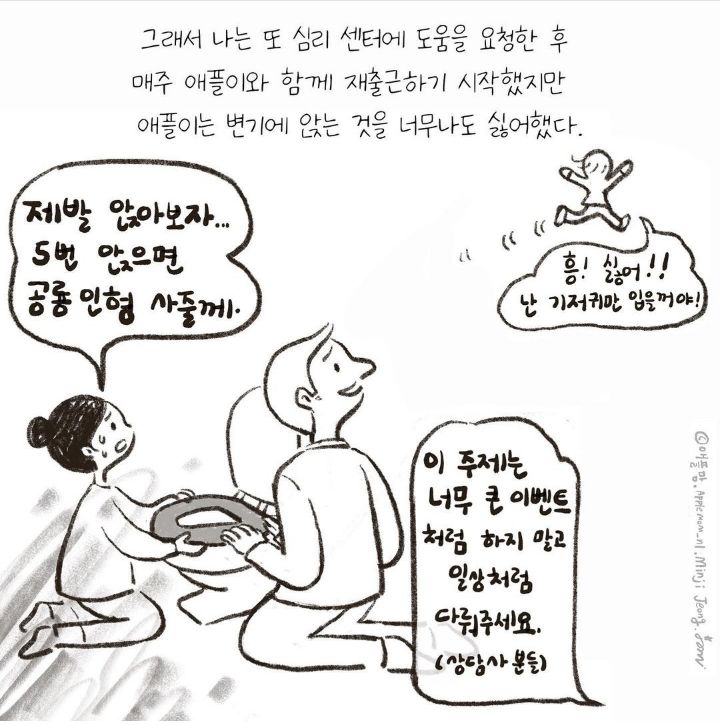 그래서 나는 또 심리 센터에 도움을 요청한 후
매주 애플이와 함께 재출근하기 시작했지만
애플이는 변기에 앉는 것을 너무나도 싫어했다.
제발 앉아보자...
5번 앉으면
공룡인형 사줄께.
흥! 싫어!!
난 기저귀만 입을꺼야!
이 주제는
너무 큰 이벤트
처럼 하지 말고
일상처럼
다뤄주세요.
(상담사 분들)
©애플맘.Applemom_nl.Minji Jeong.